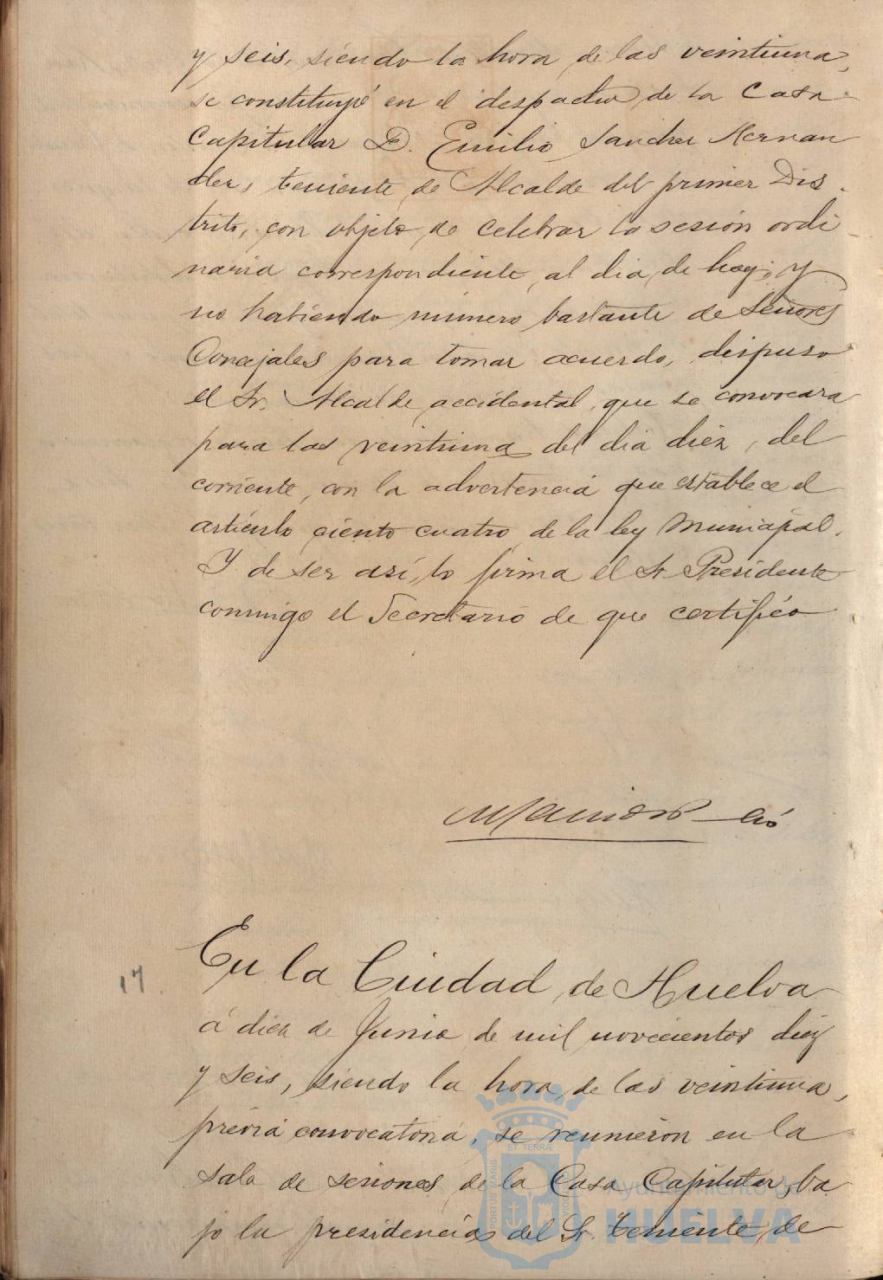 y seis, siendo la hora de las veintiuna,
se constituyó en el despacho de la Casa
Capitular D. Emilio Sanchez Hernan
dez, teniente de Alcalde del primer Dis-
trito, con objeto de celebrar la sesión ordi-
naria correspondiente al dia de hoy; y
no habiendo número bastante de Señores
Concejales para tomar acuerdo, dispuso
el Sr. Alcalde accidental que se convocara
para las veintiuna del dia diez, del
corriente, con la advertencia que establece el
articulo ciento cuatro de la ley Municipal.
Y de ser así, lo firma el Sr. Presidente
conmigo el Secretario de que certifico
17.
En la Ciudad de Huelva
á diez de Junio de mil novecientos diez
y seis, siendo la hora de las veintiuna,
prévia convocatoria, se reunieron en la
sala de sesiones de la Casa Capitular, ba
jo la presidencia del Sr. teniente de
Ayuntamiento de
HUELVA